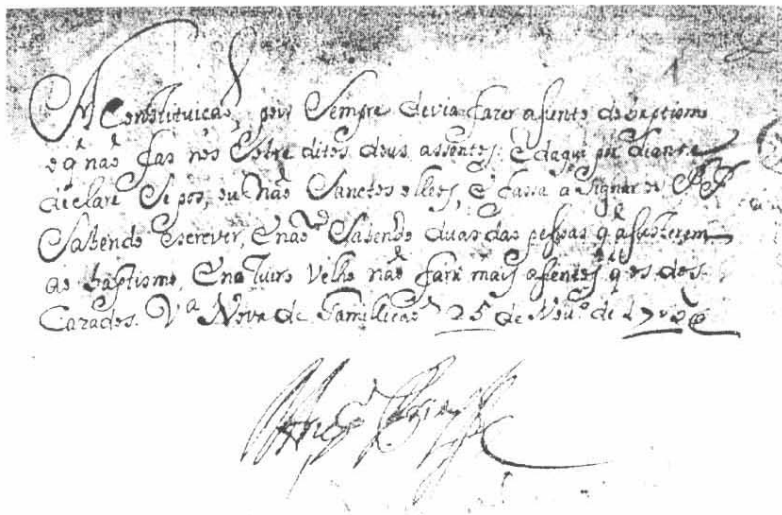 A Constituicaõ, pois Sempre devia fazer asunto do baptismo
e q̃ naõ fas nos Sobre ditos deus assentos; E daqui por diante
declare Se pos, ou naõ Sanctos olleos, e fassa asignar os PP
Sabendo escrever, E naõ Sabendo duas das pessoas q̃ asisterem
ao baptismo, E no livro Velho naõ fara mais asentos q̃ os dos
Cazados. Vᵃ Nova de Famillicaõ 25 de Nouº de